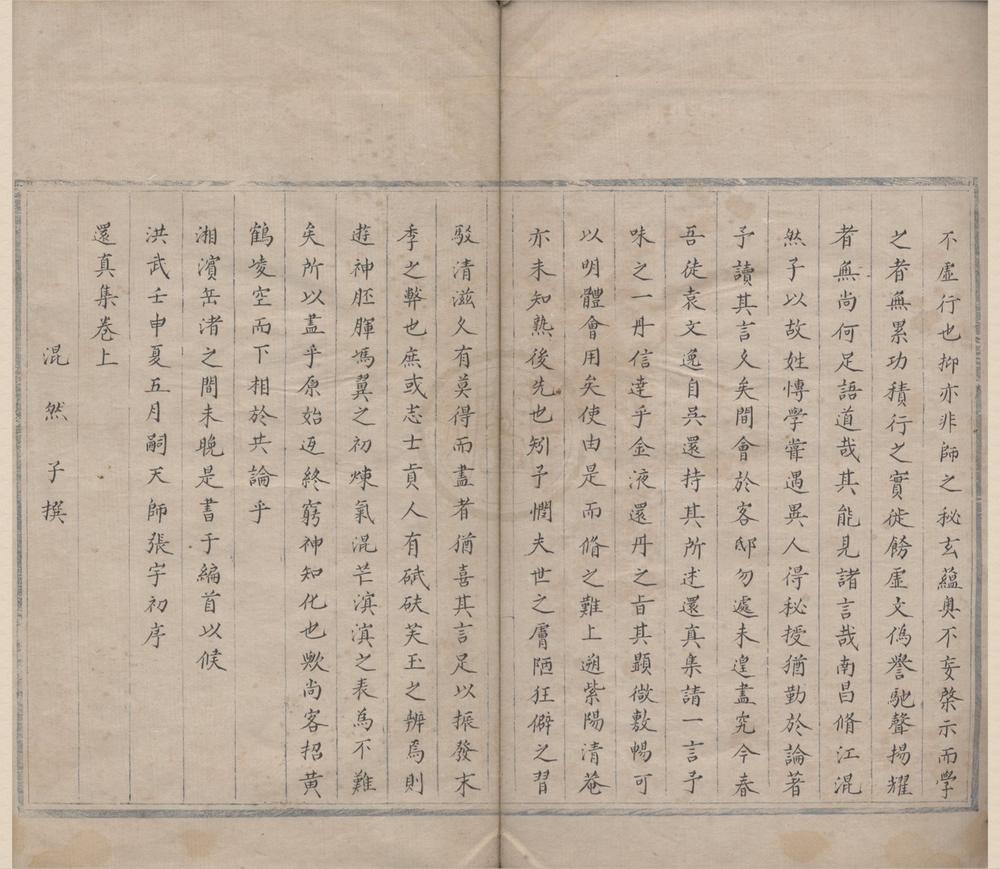 不虛行也抑亦非師之秘玄蘊奧不妄榮示而學
之者無累功積行之實徙餝虛文偽譽馳聲揚耀
者無尚何足語道哉其能見諸言哉南昌脩江混
然子以故姓愽學甞遇異人得秘授猶勤於論著
予讀其言久矣間會於客邸勿遽未遑盡究今春
吾徒袁文逸自吳還持其所述還真集請一言予
味之一丹信逹乎金液還丹之㫖其顯微敷暢可
以明體會用矣使由是而脩之雖上遡紫陽清菴
亦未知熟後先也矧予憫夫世之膚陋狂僻之習
駁清滋久有莫得而盡者猶喜其言足以振發末
季之弊也庶或志士貢人有碔砆芙玉之辨焉則
遊神胚腪馮翼之初煉氣混芒滇滇之表為不難
矣所以盡乎原始返終窮神知化也歟尚客招黄
鶴崚空而下相於共論乎
湘濱岳渚之間未晚是書于編首以候
洪武壬申夏五月嗣天師張宇初序
還真集卷上
混然子撰